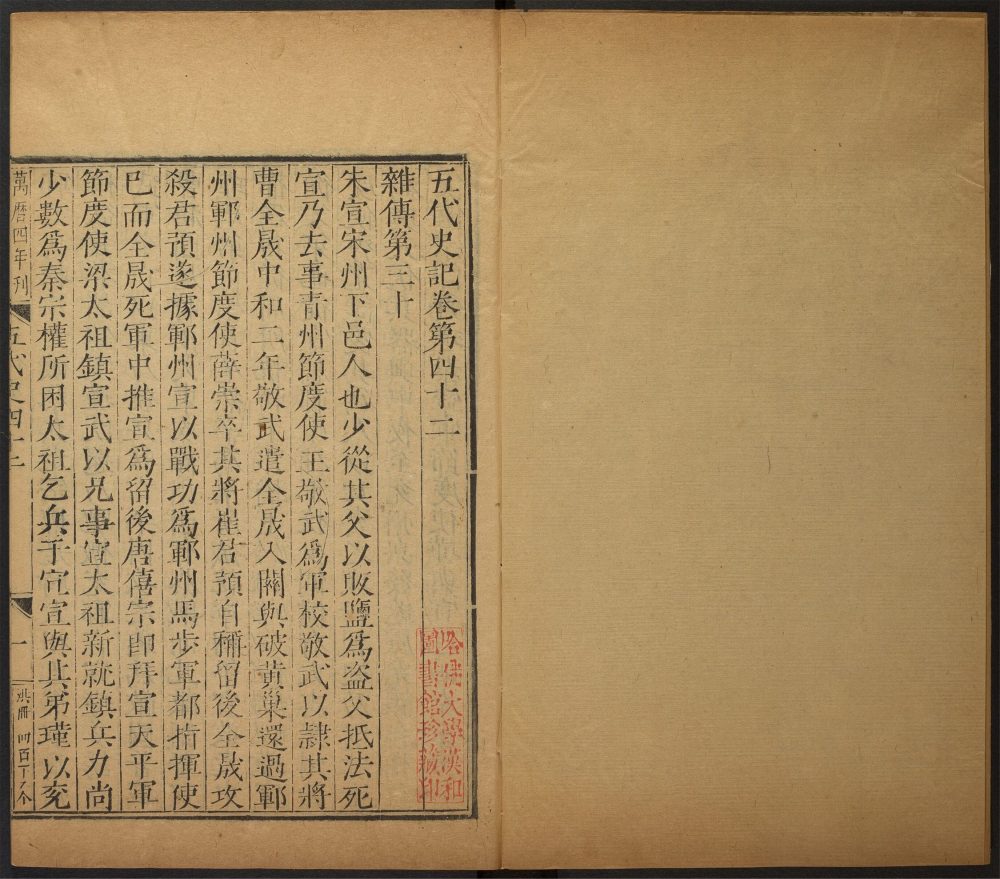 五代史記卷第四十二
雜傳第三十
朱宣宋州下邑人也少從其父以販鹽爲盜父抵法死
宣乃去事青州節度使王敬武爲軍校敬武以隷其將
曹全晟中和二年敬武遣全晟入關與破黃巢還過鄆
州鄆州節度使薛崇卒其將崔君預自稱留後全晟攻
殺君預遂據鄆州宣以戰功爲鄆州馬步軍都指揮使
已而全晟死軍中推宣爲留後唐僖宗卽拜宣天平軍
節度使梁太祖鎮宣武以兄事宣太祖新就鎮兵力尚
少數爲秦宗權所困太祖乞兵于宣宣與其弟瑾以兖
萬曆四年刊
五代史四十二
一
哈佛大學漢和
圖書館珍藏印